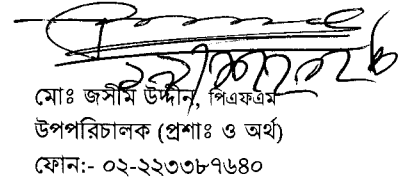 মোঃ জসীম উদ্দীন, পিএফএম
উপপরিচালক (প্রশাঃ ও অর্থ)
ফোন:- ০২-২২৩৩৮৭৬৪০